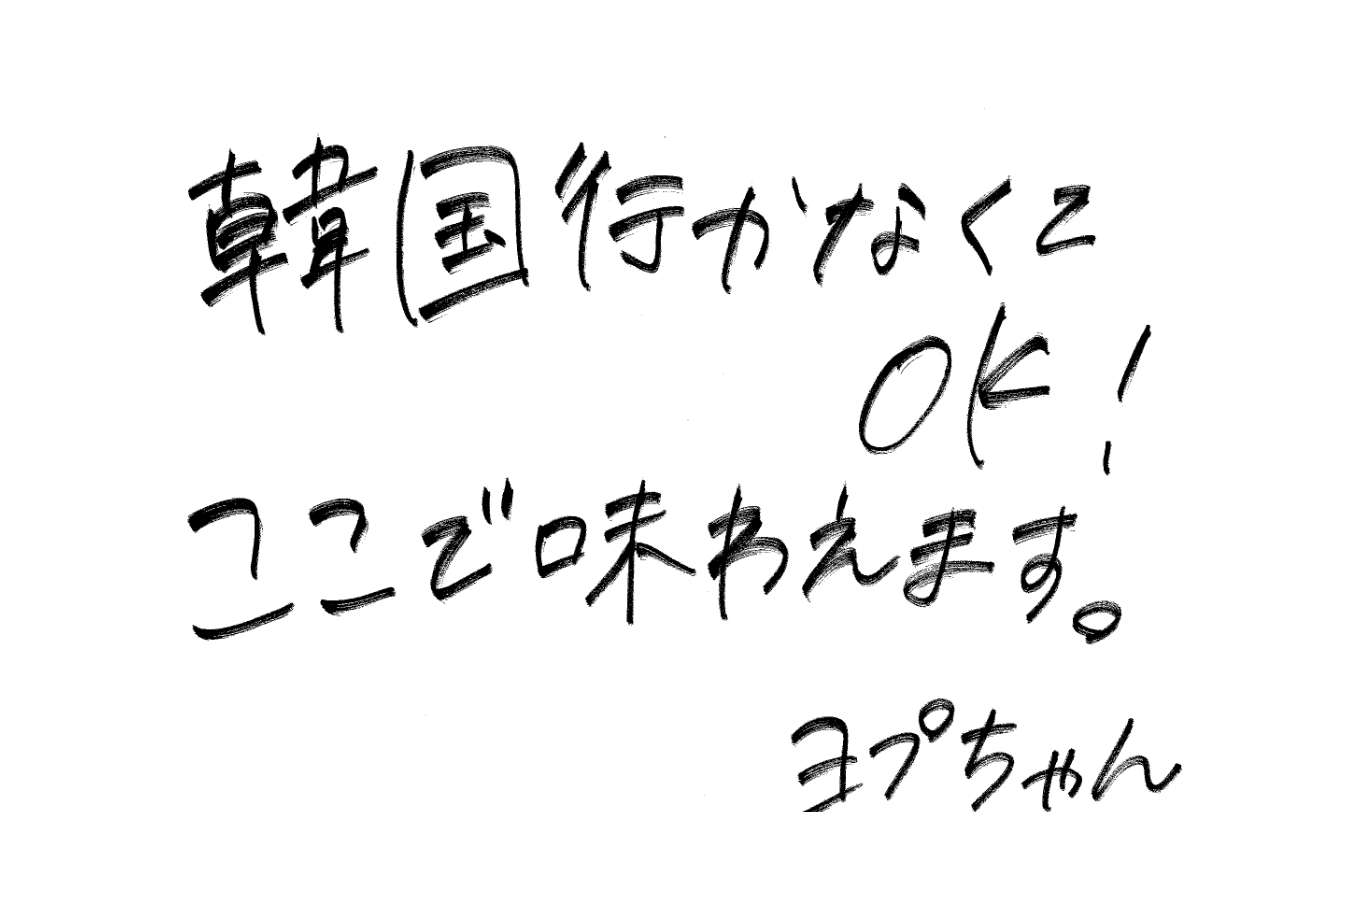 韓国行かなくて
OK!
ここで味わえます。
ヨプちゃん